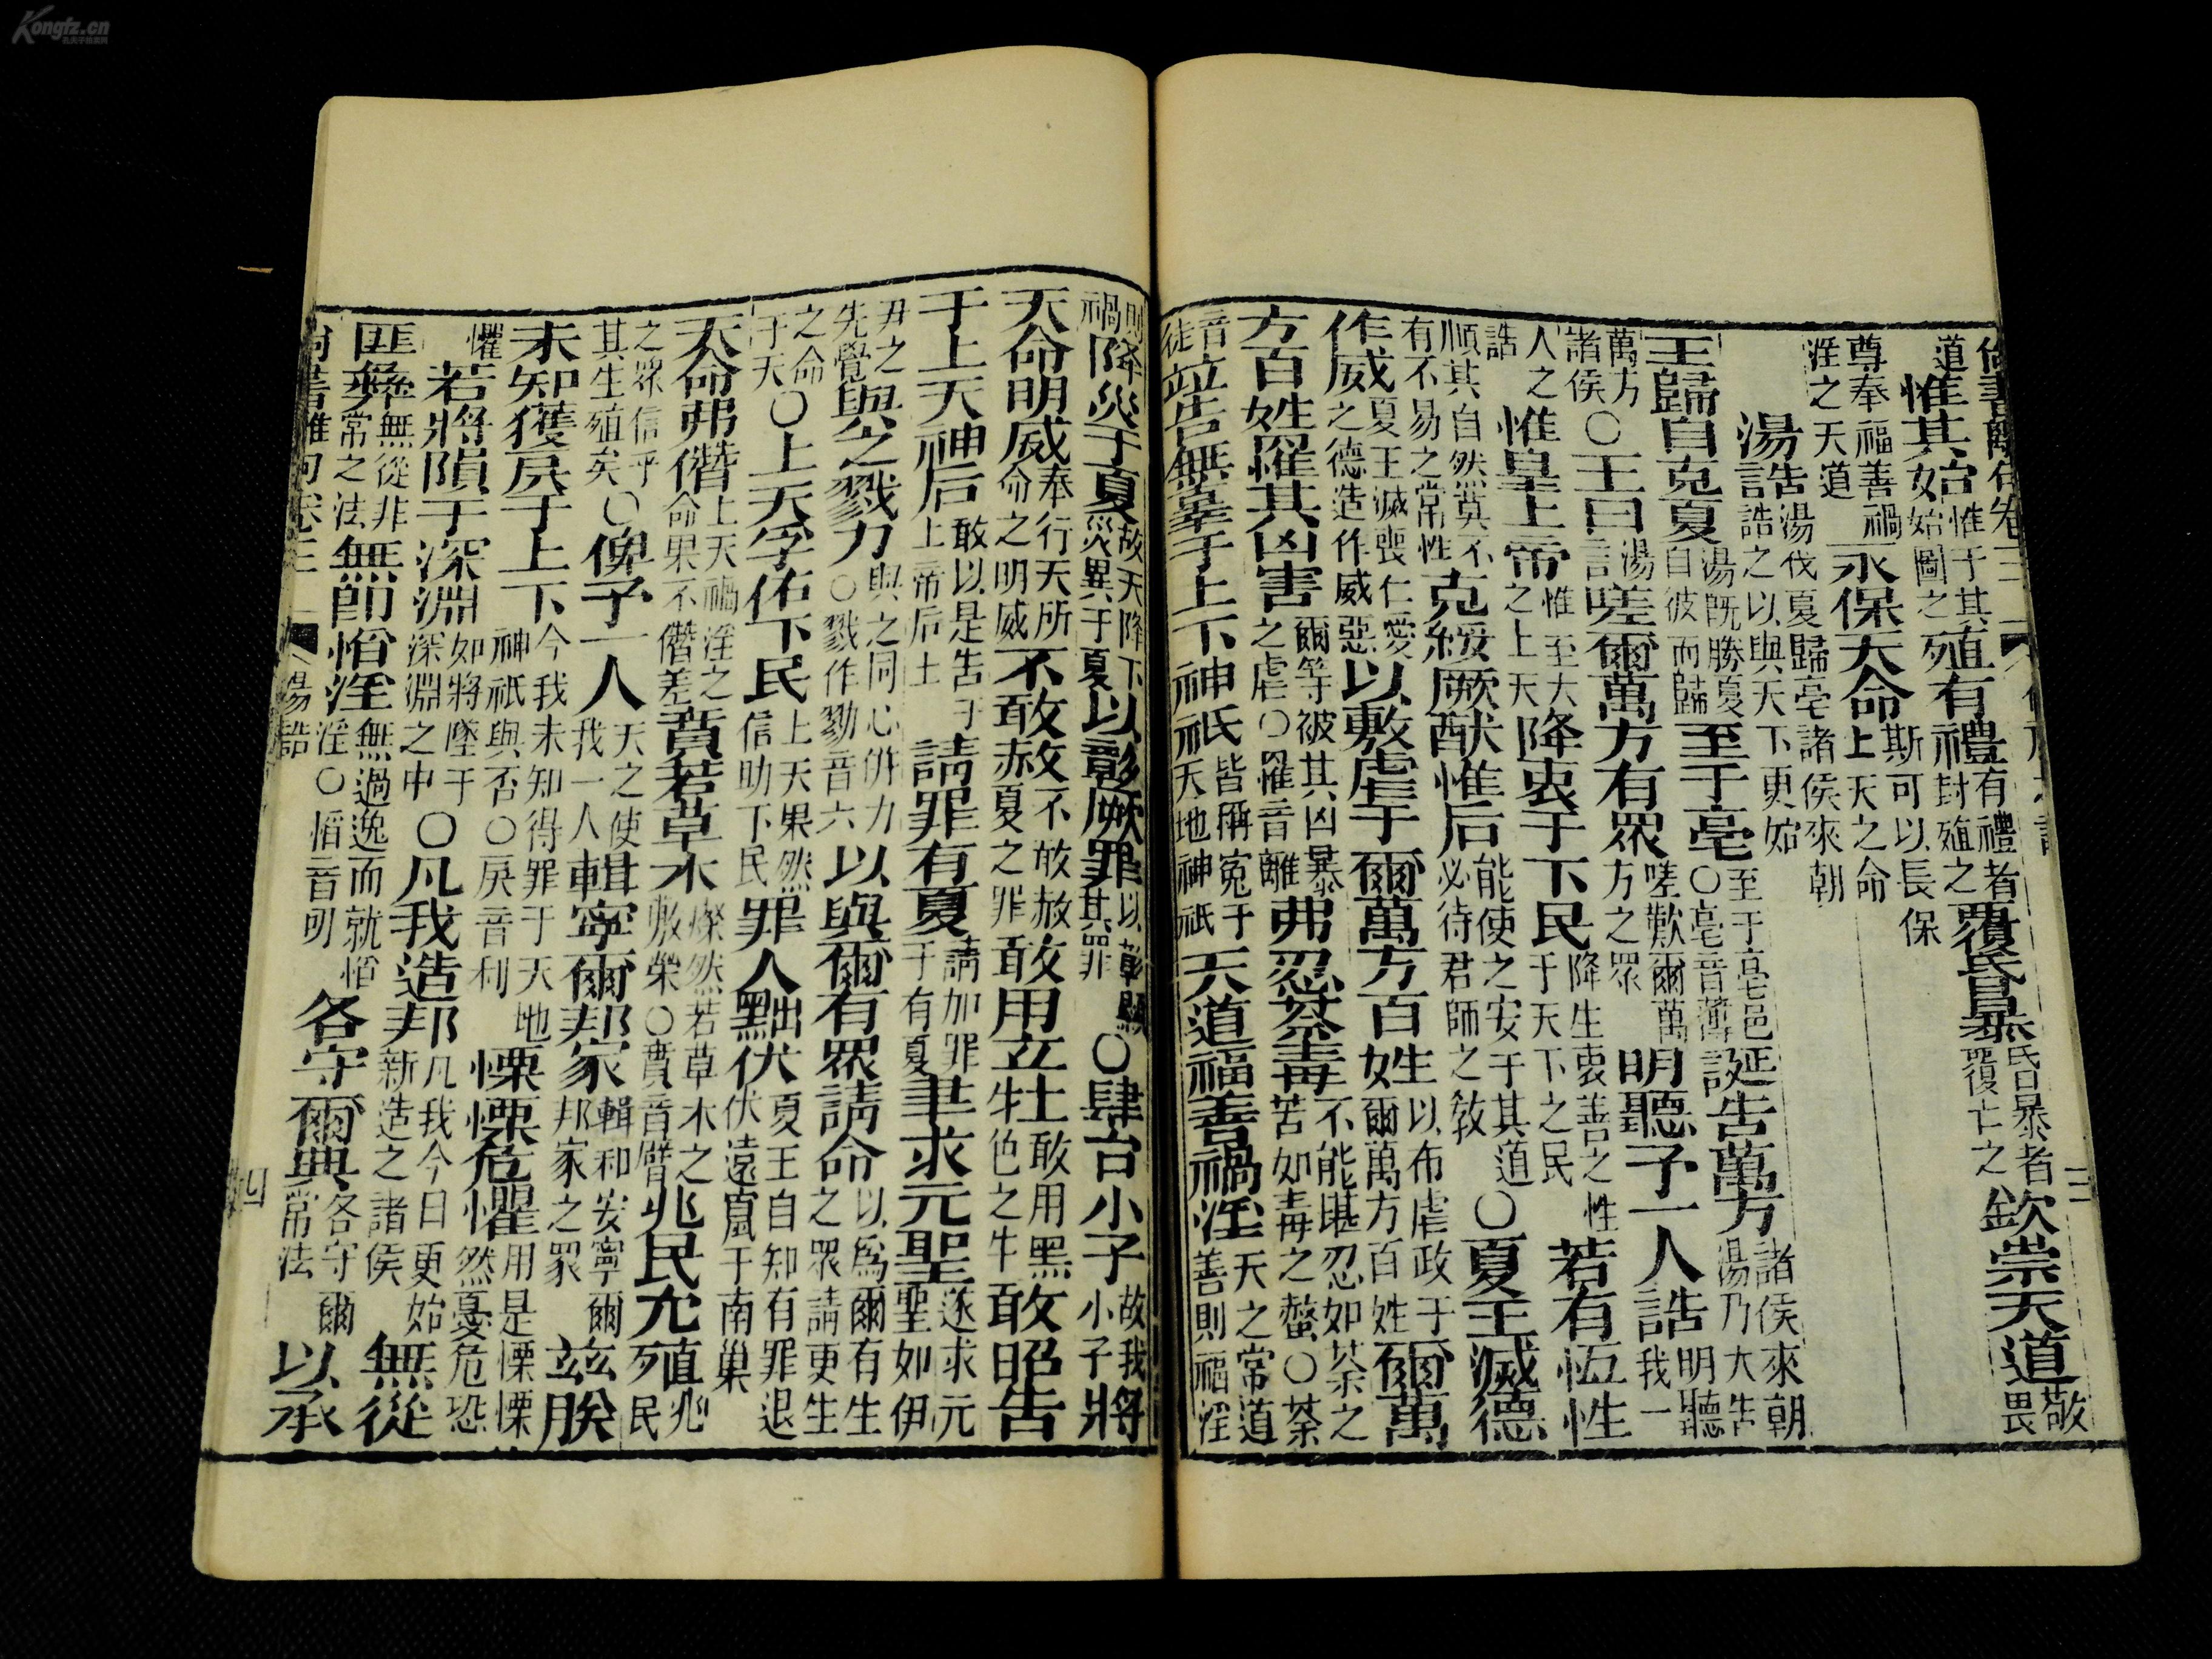 Kongfz.cn
孔夫子旧书网
尚書離句卷三 三
道惟其始惟于其始圖之殖有禮有禮者封殖之覆昏暴昏暴者覆亡之欽崇天道敬畏
尊奉福善禍淫之天道永保天命斯可以長保上天之命
湯誥湯伐夏歸亳諸侯來朝誥之以與天下更始
王歸自克夏湯既勝夏自彼而歸至于亳至于亳邑○亳音薄誕告萬方諸侯來朝湯乃大告
萬方諸侯○王曰湯言嗟爾萬方有眾嗟歎爾萬方之眾明聽予一人誥明聽我一
人之誥惟皇上帝惟至大之上天降衷于下民降生衷善之性于天下之民若有恆性
順其自然莫不有不易之常性克綏厥猷惟后能使之安于其道必待君師之教○夏王滅德
作威夏王滅喪仁愛之德造作威惡以敷虐于爾萬方百姓以布虐政于爾萬方百姓爾萬
方百姓罹其凶害爾等被其凶暴之虐○罹音離弗忍荼毒不能堪忍如荼之苦如毒之螫○荼
音徒並告無辜于上下神祇皆稱冤于天地神祇天道福善禍淫天之常道善則福淫
則禍降災于夏故天降下災異于夏以彰厥罪以彰顯其罪○肆台小子故我小子將
天命明威奉行天所命之明威不敢赦不敢赦夏之罪敢用玄牡敢用黑色之牛敢昭告
于上天神后敢以是告于上帝后土請罪有夏請加罪于有夏聿求元聖遂求元聖如伊
尹之先覺與之戮力與之同心併力○戮作勠音六以與爾有眾請命以爲爾有生之眾請更生
之命于天○上天孚佑下民上天果然信助下民罪人黜伏夏王自知有罪退伏遠竄于南巢
天命弗僭上天禍淫之命果不僭差賁若草木燦然若草木之敷榮○賁音臂兆民允殖兆民
之眾信乎其生殖矣○俾予一人天之使我一人輯寧爾邦家輯和安寧爾邦家之眾茲朕
未知獲戾于上下今我未知得罪于天地神祇與否○戾音利慄慄危懼用是慄慄然憂危恐
懼若將隕于深淵如將墜于深淵之中○凡我造邦凡我今日更始新造之諸侯無從
匪彝無從非常之法無卽慆淫無過逸而就慆淫○慆音叨各守爾典各守爾常法以承
尚書離句卷三 湯誥 四